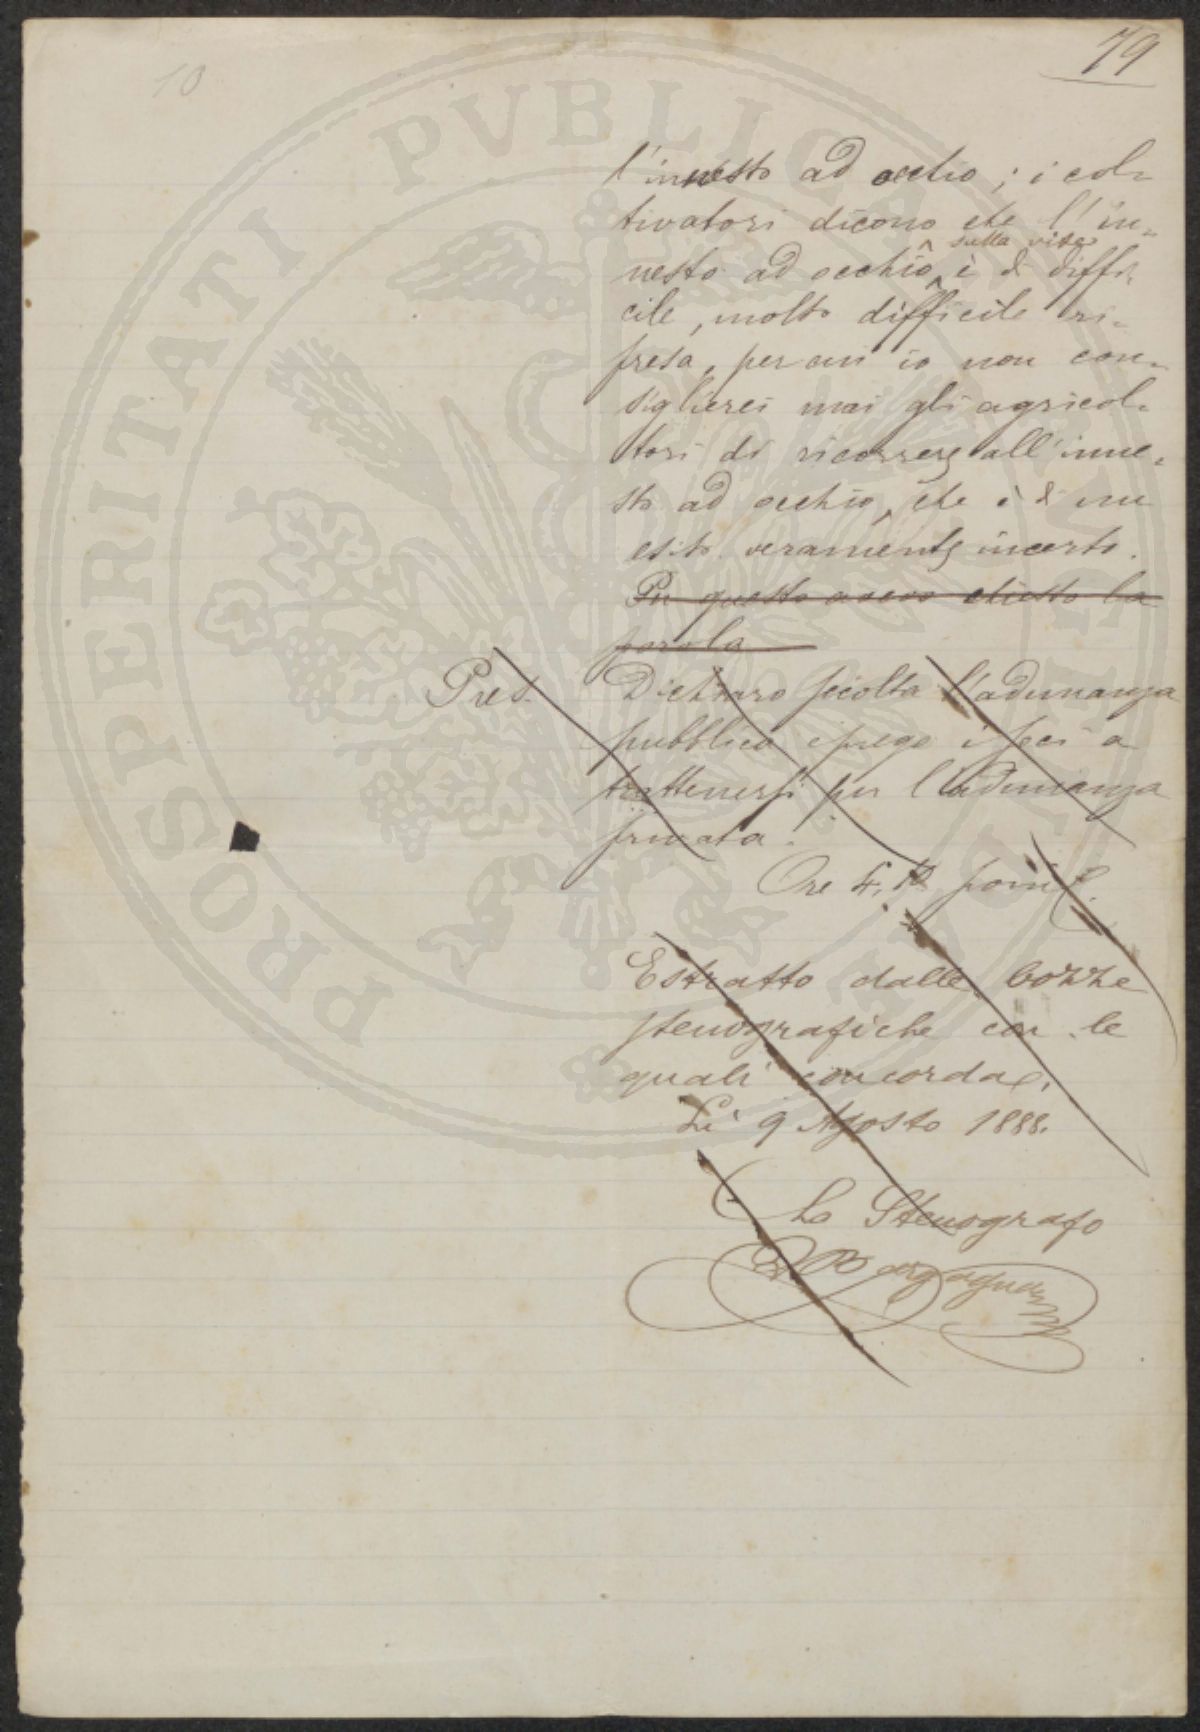 10
79
l'innesto ad occhio; i col-
tivatori dicono che l'in-
sulla vite
nesto ad occhio è di diffi-
cile, molto difficile ri-
presa, per cui io non con-
siglierei mai gli agricol-
tori di ricorrere all'inne-
sto ad occhio, che è di un
esito veramente incerto.
Per questo avevo chiesto la
parola
Pres. Dichiaro sciolta l'adunanza
pubblica e prego i soci a
trattenersi per l'adunanza
privata.
Ore 4, pom.
Estratto dalle bozze
stenografiche con le
quali concorda.
Li 9 Agosto 1888.
Lo Stenografo
PROSPERITATI PVBLICAE